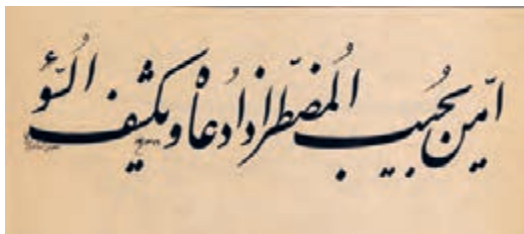 امّن یُجیبُ المُضطّر اذا دُعاهُ و یکشف السُّؤَ